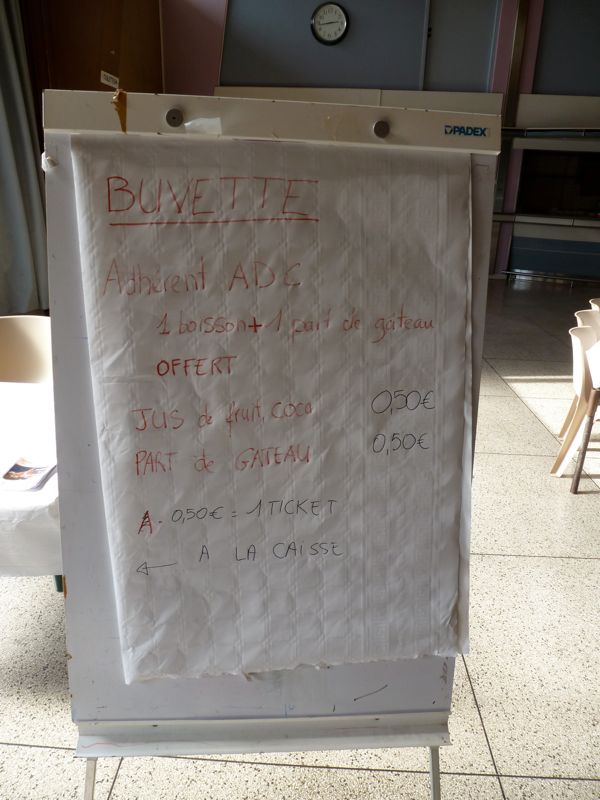 PADEX
BUVETTE
Adhérent ADC
1 boisson + 1 part de gâteau
OFFERT
JUS de fruit, coca 0,50€
PART de GATEAU 0,50€
A. 0,50€ = 1 TICKET
← A LA CAISSE